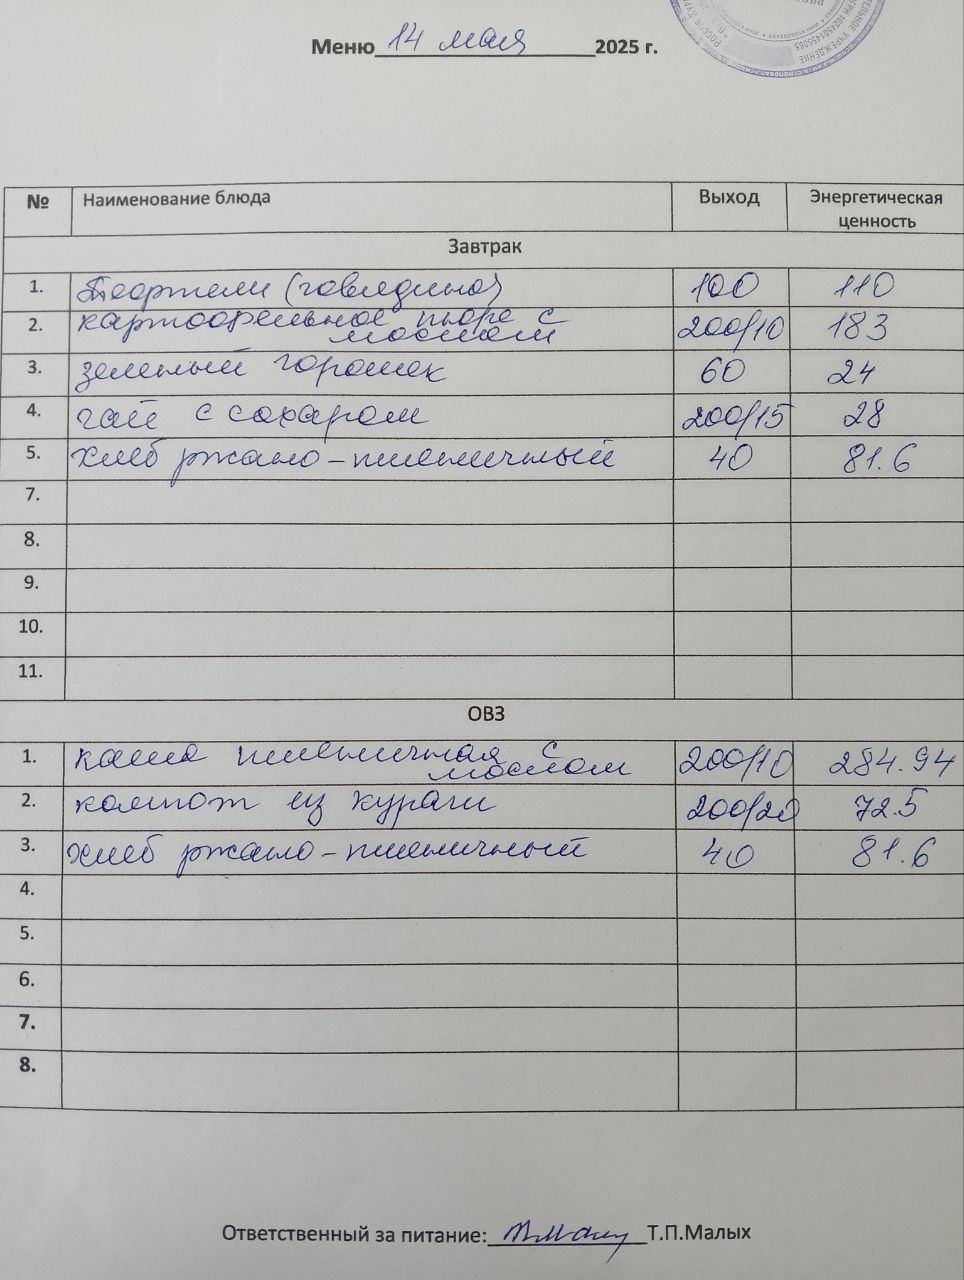 Меню 14 мая 2025 г.
№ Наименование блюда Выход Энергетическая
ценность
Завтрак
1. Тефтели (говядина) 100 110
2. картофельное пюре с
маслом 200/10 183
3. зеленый горошек 60 24
4. чай с сахаром 200/15 28
5. хлеб ржано-пшеничный 40 81.6
7.
8.
9.
10.
11.
ОВЗ
1. каша пшеничная с
маслом 200/10 284.94
2. компот из кураги 200/20 72.5
3. хлеб ржано-пшеничный 40 81.6
4.
5.
6.
7.
8.
Ответственный за питание: Т.П.Малых